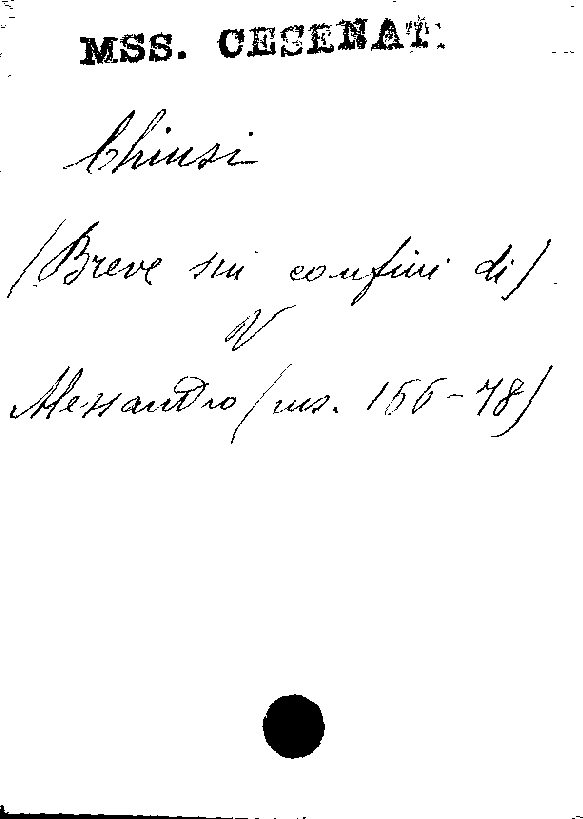 MSS. CESENAT.
Chiusi
(Breve sui confini di)
V
Alessandro (ms. 166-78)